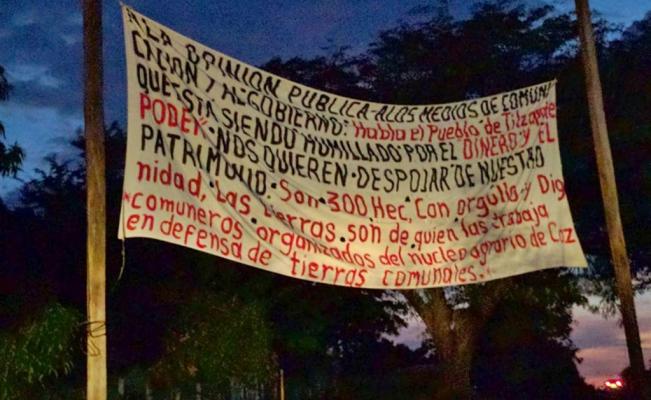 A LA OPINION PUBLICA-A LOS MEDIOS DE COMUNI
CACION Y AL GOBIERNO: Habla el Pueblo de Tilzapote
QUE ESTA SIENDO HUMILLADO POR EL DINERO Y EL
PODER • NOS QUIEREN • DESPOJAR DE NUESTRO
PATRIMONIO • Son • 300 Hec, Con orgullo y Dig
nidad, Las tierras • son de quien las trabaja
"comuneros organizados del nucleo agrario de Caz
en defensa de tierras comunales."